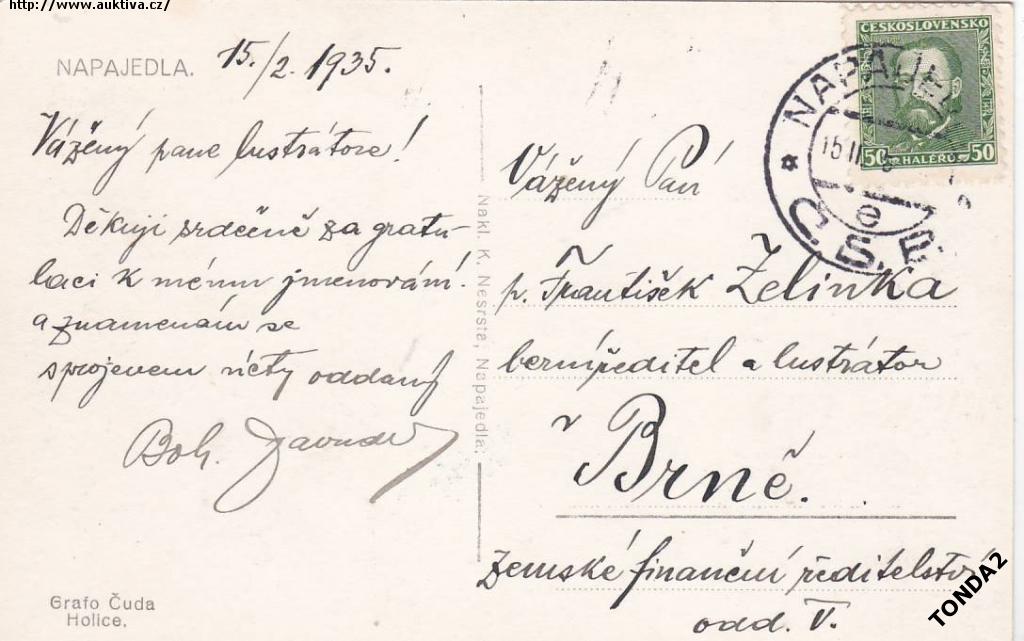 http://www.auktiva.cz/
NAPAJEDLA.
15./2. 1935.
Vážený pane lustrátore!
Děkuji srdečně za gratu-
laci k mému jmenování
a znamenám se
s projevem úcty oddaný
Boh.
Nakl. K. Nesrsta, Napajedla.
Grafo Čuda
Holice.
ČESKOSLOVENSKO
50 HALÉŘŮ 50
NAPAJEDL
15 II
e
Č.S.R.
Vážený Pán
p. František Želinka
berní ředitel a lustrátor
v Brně.
zemské finanční ředitelství
odd. V.
TONDA2